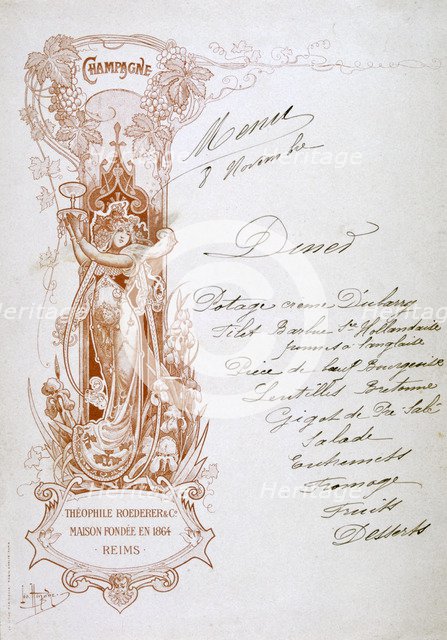 CHAMPAGNE
Menu
8 Novembre
Diner
Potage creme Dubarry
Filet Barbue Sce Hollandaise
pommes à l'anglaise
Pièce de bœuf Bourgeoise
Lentilles Bretonne
Gigot de Pré Salé
Salade
Entremets
Fromage
Fruits
Desserts
THÉOPHILE ROEDERER & Co
MAISON FONDÉE EN 1864
· REIMS ·
Heritage Images